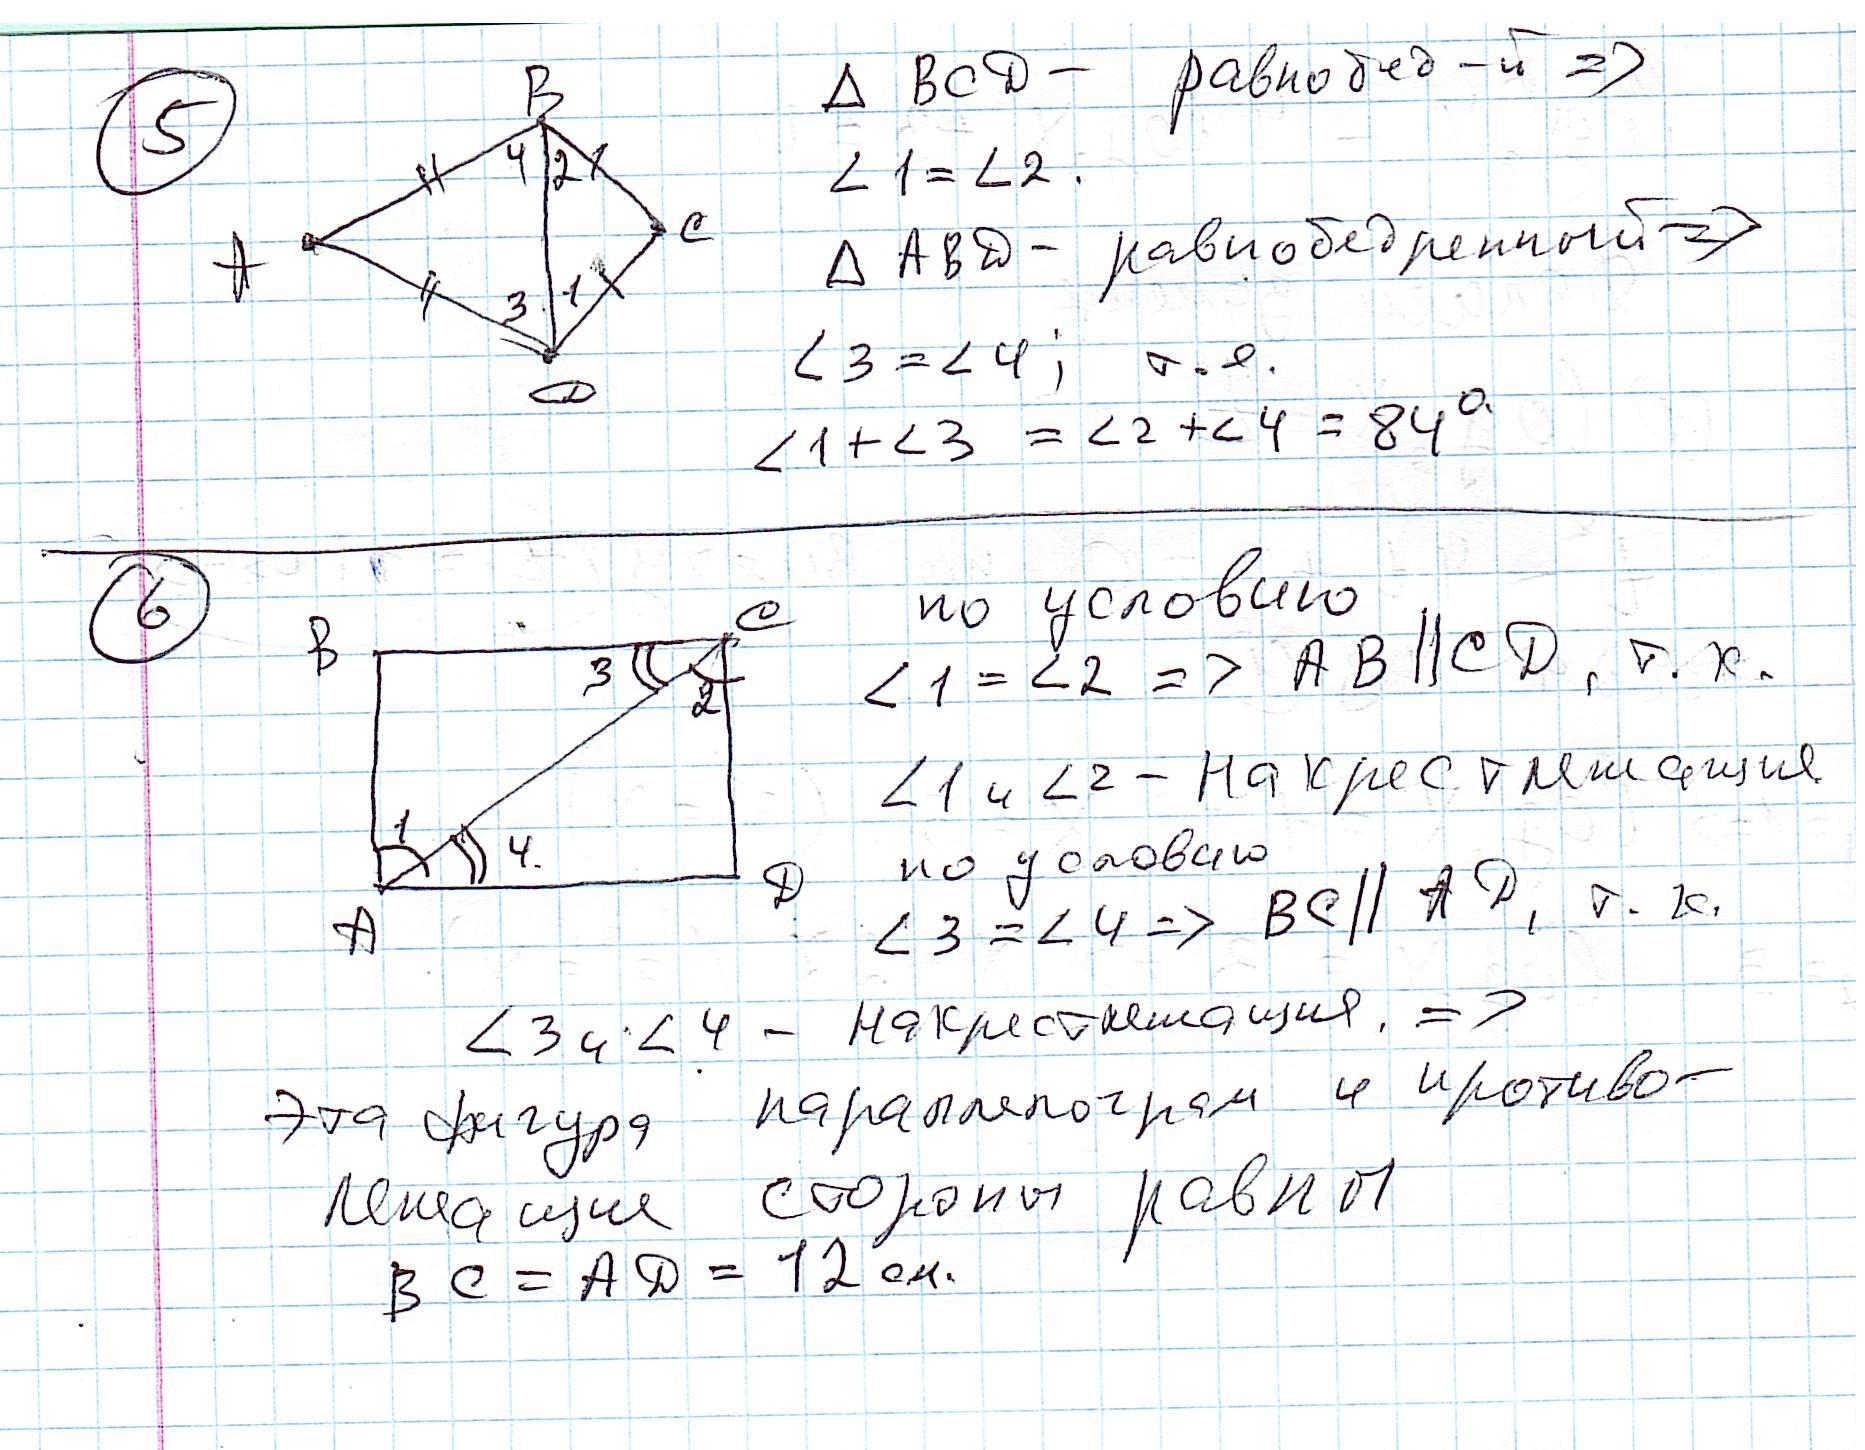 5
B
4 2
A
C
3 1
D
Δ BCD - равнобед-й =>
∠1=∠2.
Δ ABD - равнобедренный =>
∠3=∠4; т.е.
∠1+∠3 = ∠2+∠4 = 84°
6
B
C
3
2
1
4.
A
D
по условию
∠1=∠2 => AB||CD, т.к.
∠1 и ∠2 - накрестлежащие
по условию
∠3=∠4 => BC||AD, т.к.
∠3 и ∠4 - накрестлежащие. =>
Эта фигура параллелограм и противо-
лежащие стороны равны
BC = AD = 12 см.